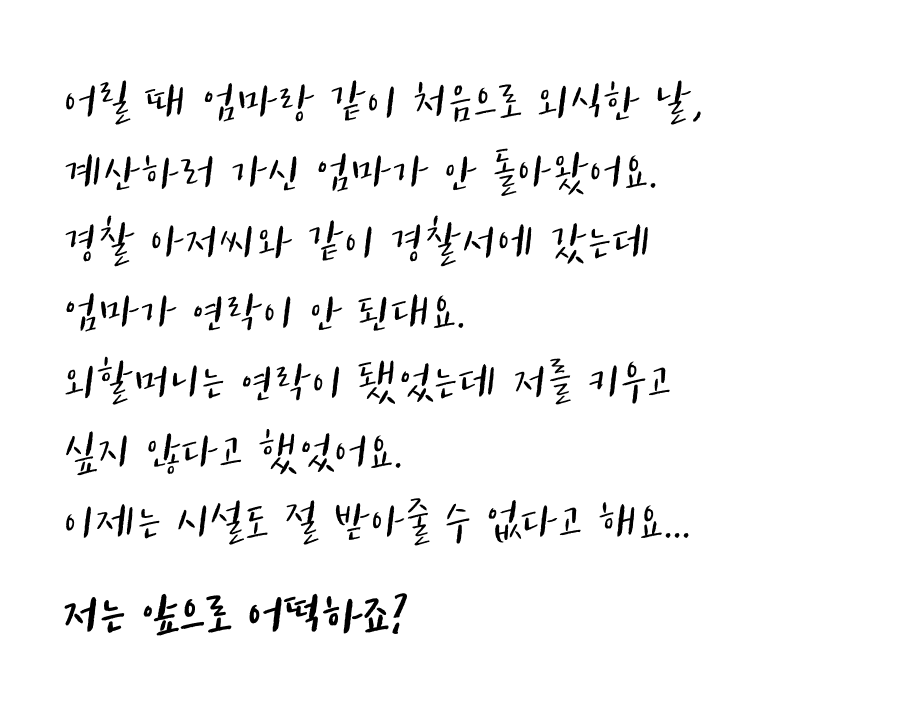 어릴 때 엄마랑 같이 처음으로 외식한 날,
계산하러 가신 엄마가 안 돌아왔어요.
경찰 아저씨와 같이 경찰서에 갔는데
엄마가 연락이 안 된대요.
외할머니는 연락이 됐었는데 저를 키우고
싶지 않다고 했었어요.
이제는 시설도 절 받아줄 수 없다고 해요...
저는 앞으로 어떡하죠?